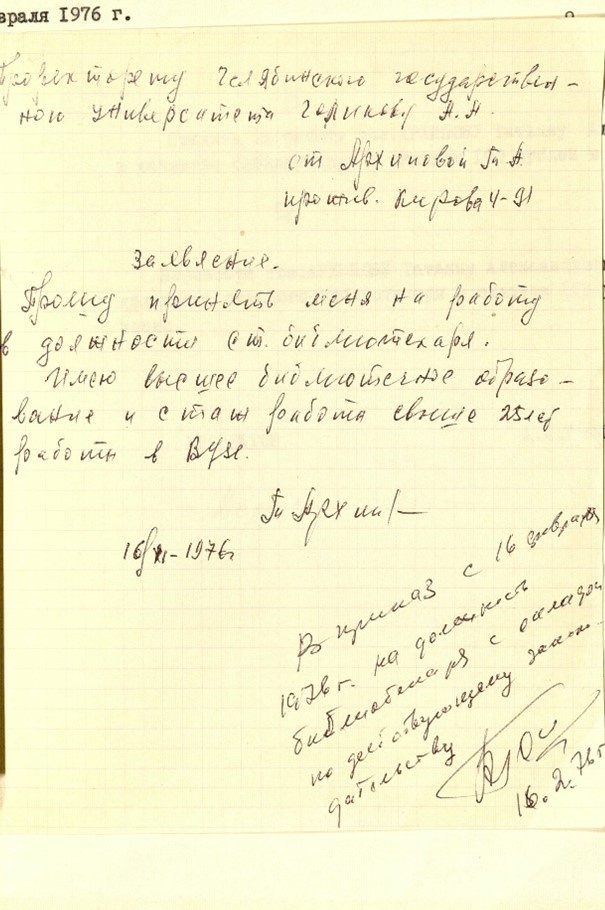 враля 1976 г.
Проректору Челябинского государствен-
ного университета
от Архиповой Т. А.
прожив. Кирова 4-91
Заявление.
Прошу принять меня на работу
в должности ст. библиотекаря.
Имею высшее библиотечное образо-
вание и стаж работы свыше 25 лет
работы в ВУЗе.
16/II-1976г
В приказ с 16 февраля
1976 г. на должность
библиотекаря с окладом
по действующему законо-
дательству
16.2.76г